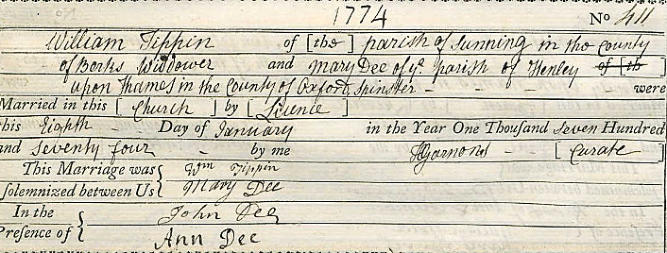 1774
No 411
William Tippin of [the] parish of Sunning in the County
of Berks Widdower and Mary Dee of ye parish of Henley of [th
upon Thames in the County of Oxford, Spinster - - - were
Married in this [Church] by [Licence]
this Eighth - Day of January in the Year One Thousand Seven Hundred
and seventy four - by me Garnons - - [Curate]
This Marriage was { Wm Tippin
solemnized between Us { Mary Dee
In the { John Dee
Presence of { Ann Dee